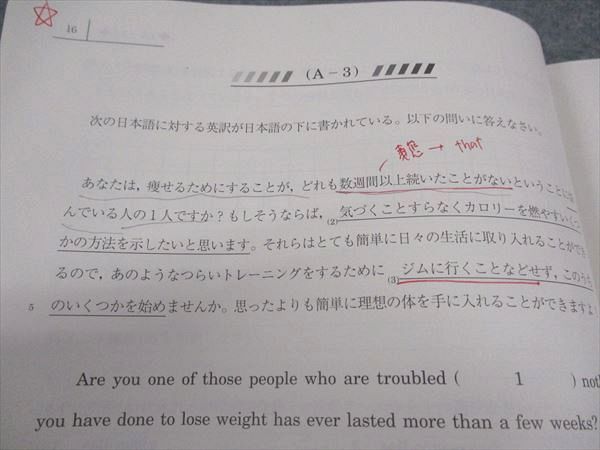 16
(A-3)
次の日本語に対する英訳が日本語の下に書かれている。以下の問いに答えなさい。
→ that
あなたは，痩せるためにすることが，どれも数週間以上続いたことがないということに
んでいる人の１人ですか？もしそうならば，(2)気づくことすらなくカロリーを燃やすいく
かの方法を示したいと思います。それらはとても簡単に日々の生活に取り入れることができ
るので，あのようなつらいトレーニングをするために(3)ジムに行くことなどせず，このうち
5 のいくつかを始めませんか。思ったよりも簡単に理想の体を手に入れることができますよ
Are you one of those people who are troubled ( 1 ) noth
you have done to lose weight has ever lasted more than a few weeks?